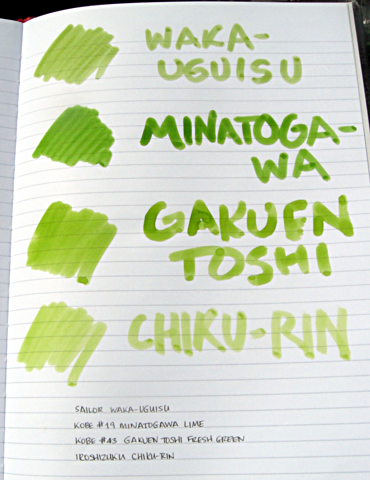 WAKA-
UGUISU
MINATOGA-
WA
GAKUEN
TOSHI
CHIKU-RIN
SAILOR WAKA-UGUISU
KOBE #19 MINATOGAWA LIME
KOBE #43 GAKUEN TOSHI FRESH GREEN
IROSHIZUKU CHIKU-RIN